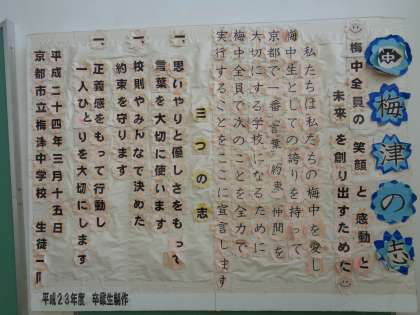 梅津の志
梅中全員の“笑顔”と“感動”と
未来を創り出すために
私たちは私たちの梅中を愛し
梅中生としての誇りを持って
京都で一番“言葉”“約束”“仲間”を
大切にする学校になるために
梅中全員で次のことを全力で
実行することをここに宣言します
三つの志
一、思いやりと優しさをもって
言葉を大切に使います
一、校則やみんなで決めた
約束を守ります
一、正義感をもって行動し
一人ひとりを大切にします
平成二十四年三月十五日
京都市立梅津中学校 生徒一同
平成23年度 卒業生制作